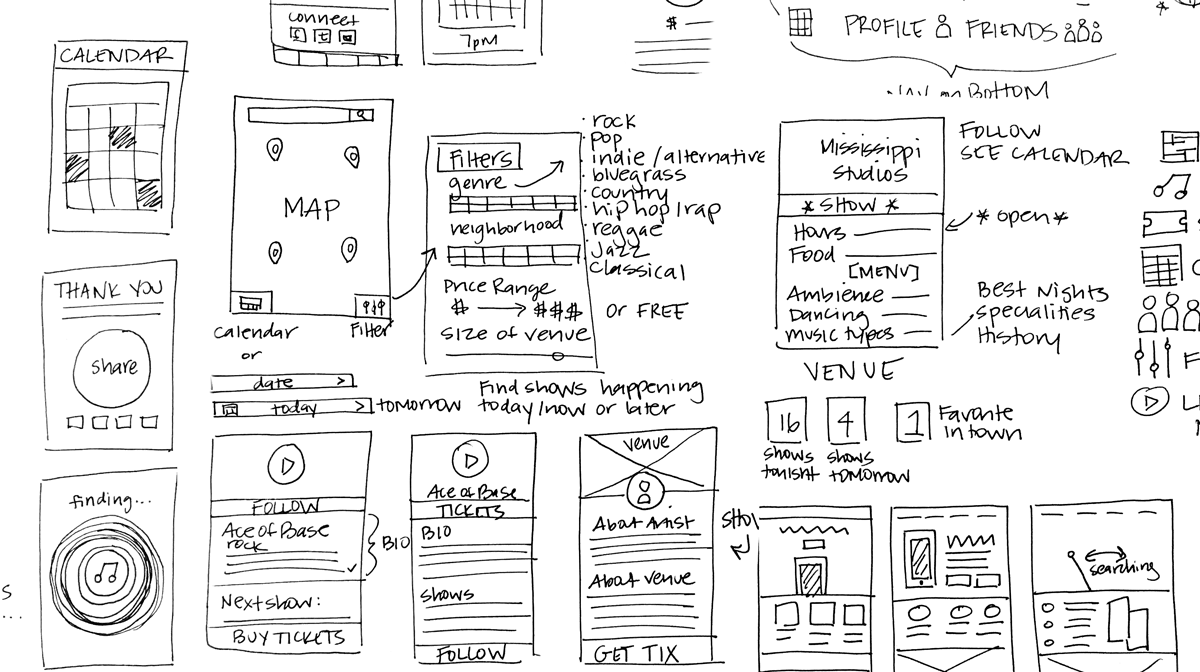 connect
7pm
$
PROFILE
FRIENDS
BOTTOM
CALENDAR
MAP
calendar
or
Filter
date >
today >
tomorrow
Filters
genre
neighborhood
Price Range
$ → $$$
or FREE
size of venue
· rock
· pop
· indie / alternative
· bluegrass
· country
· hip hop / rap
· reggae
· jazz
classical
Find shows happening
today/now or later
Mississippi
Studios
* SHOW *
Hours
Food
[MENU]
Ambience
Dancing
music types
VENUE
FOLLOW
SEE CALENDAR
* open *
Best Nights
specialities
History
16
shows
tonight
4
shows
tomorrow
1
Favorite
in town
THANK YOU
share
finding...
FOLLOW
Ace of Base
rock
BIO
Next show:
BUY TICKETS
Ace of Base
TICKETS
BIO
shows
FOLLOW
venue
About Artist
About venue
GET TIX
searching